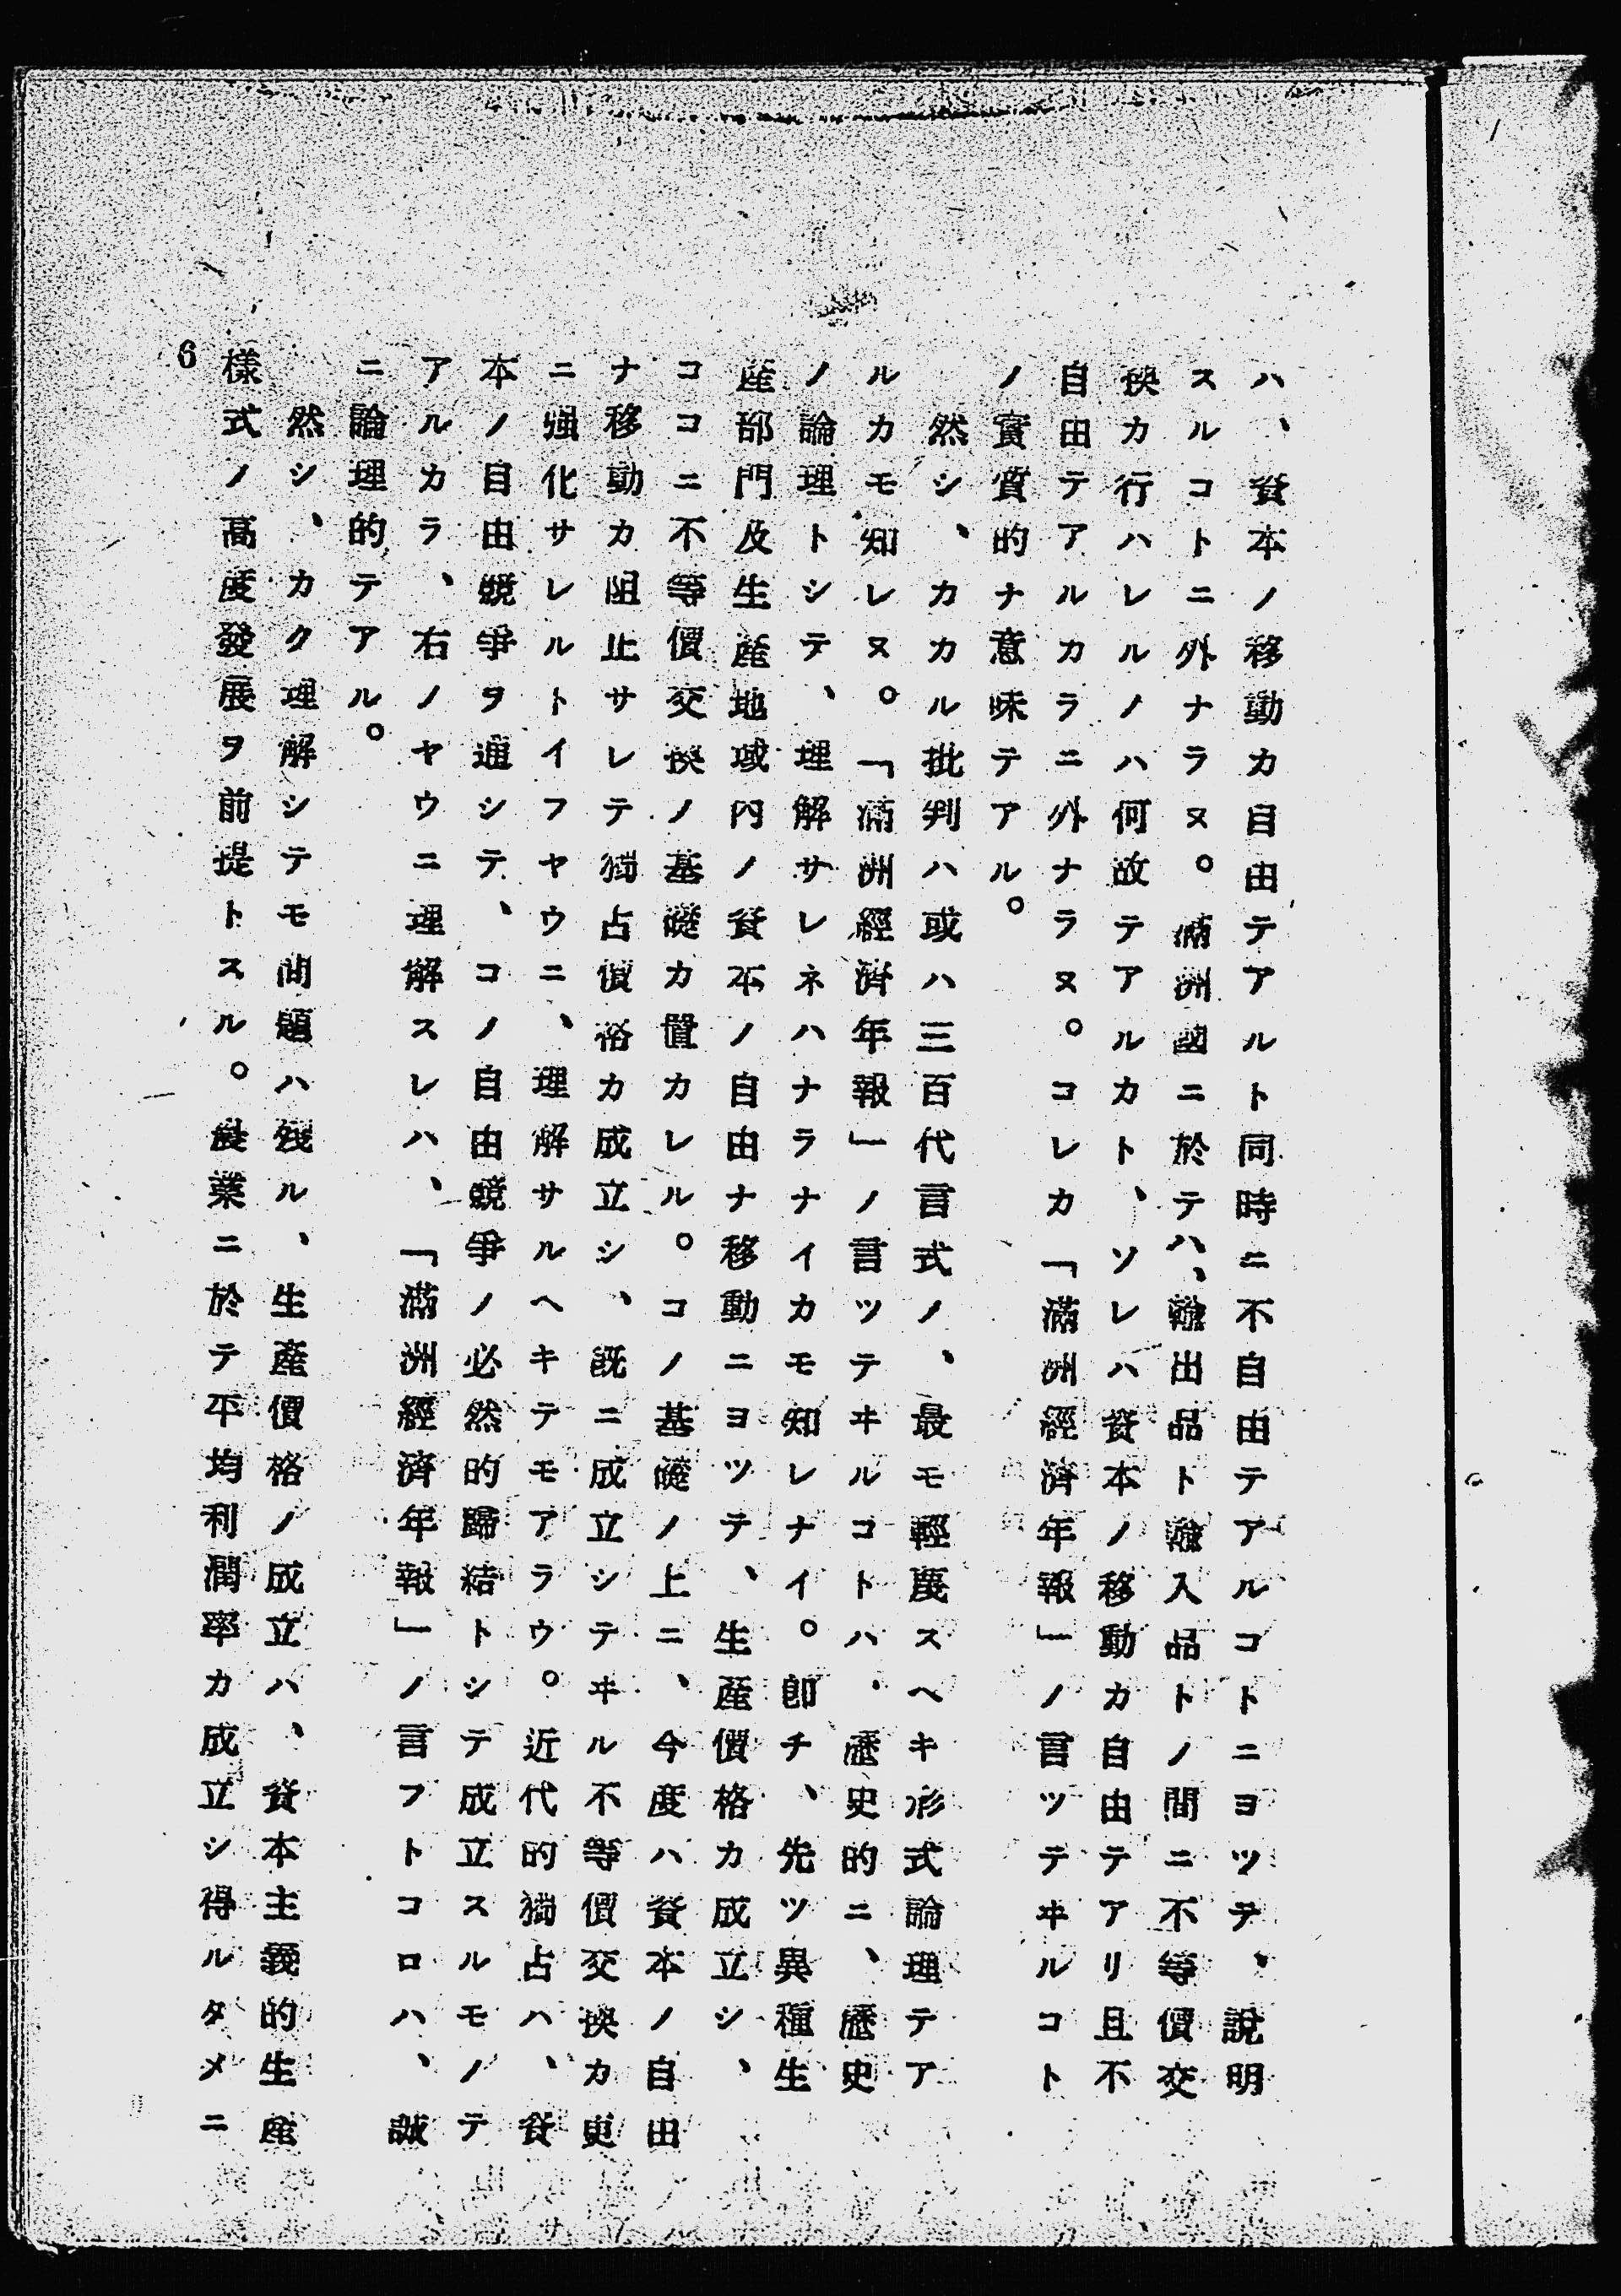 ハ、資本ノ移動カ自由テアルト同時ニ不自由テアルコトニヨツテ、説明
スルコトニ外ナラヌ。滿洲國ニ於テハ、輸出品ト輸入品トノ間ニ不等價交
換カ行ハレルノハ何故テアルカト、ソレハ資本ノ移動カ自由テアリ且不
自由テアルカラニ外ナラヌ。コレカ「滿洲經濟年報」ノ言ツテヰルコト
ノ實質的ナ意味テアル。
然シ、カカル批判ハ或ハ三百代言式ノ、最モ輕蔑スヘキ形式論理テア
ルカモ知レヌ。「滿洲經濟年報」ノ言ツテヰルコトハ、歷史的ニ、歷史
ノ論理トシテ、理解サレネハナラナイカモ知レナイ。卽チ、先ツ異種生
産部門及生産地域內ノ資本ノ自由ナ移動ニヨツテ、生産價格カ成立シ、
ココニ不等價交換ノ基礎カ置カレル。コノ基礎ノ上ニ、今度ハ資本ノ自由
ナ移動カ阻止サレテ獨占價格カ成立シ、既ニ成立シテヰル不等價交換カ更
ニ强化サレルトイフヤウニ、理解サルヘキテモアラウ。近代的獨占ハ、資
本ノ自由競爭ヲ通シテ、コノ自由競爭ノ必然的歸結トシテ成立スルモノテ
アルカラ、右ノヤウニ理解スレハ、「滿洲經濟年報」ノ言フトコロハ、誠
ニ論理的テアル。
然シ、カク理解シテモ問題ハ殘ル、生産價格ノ成立ハ、資本主義的生産
樣式ノ高度發展ヲ前提トスル。農業ニ於テ平均利潤率カ成立シ得ルタメニ
6